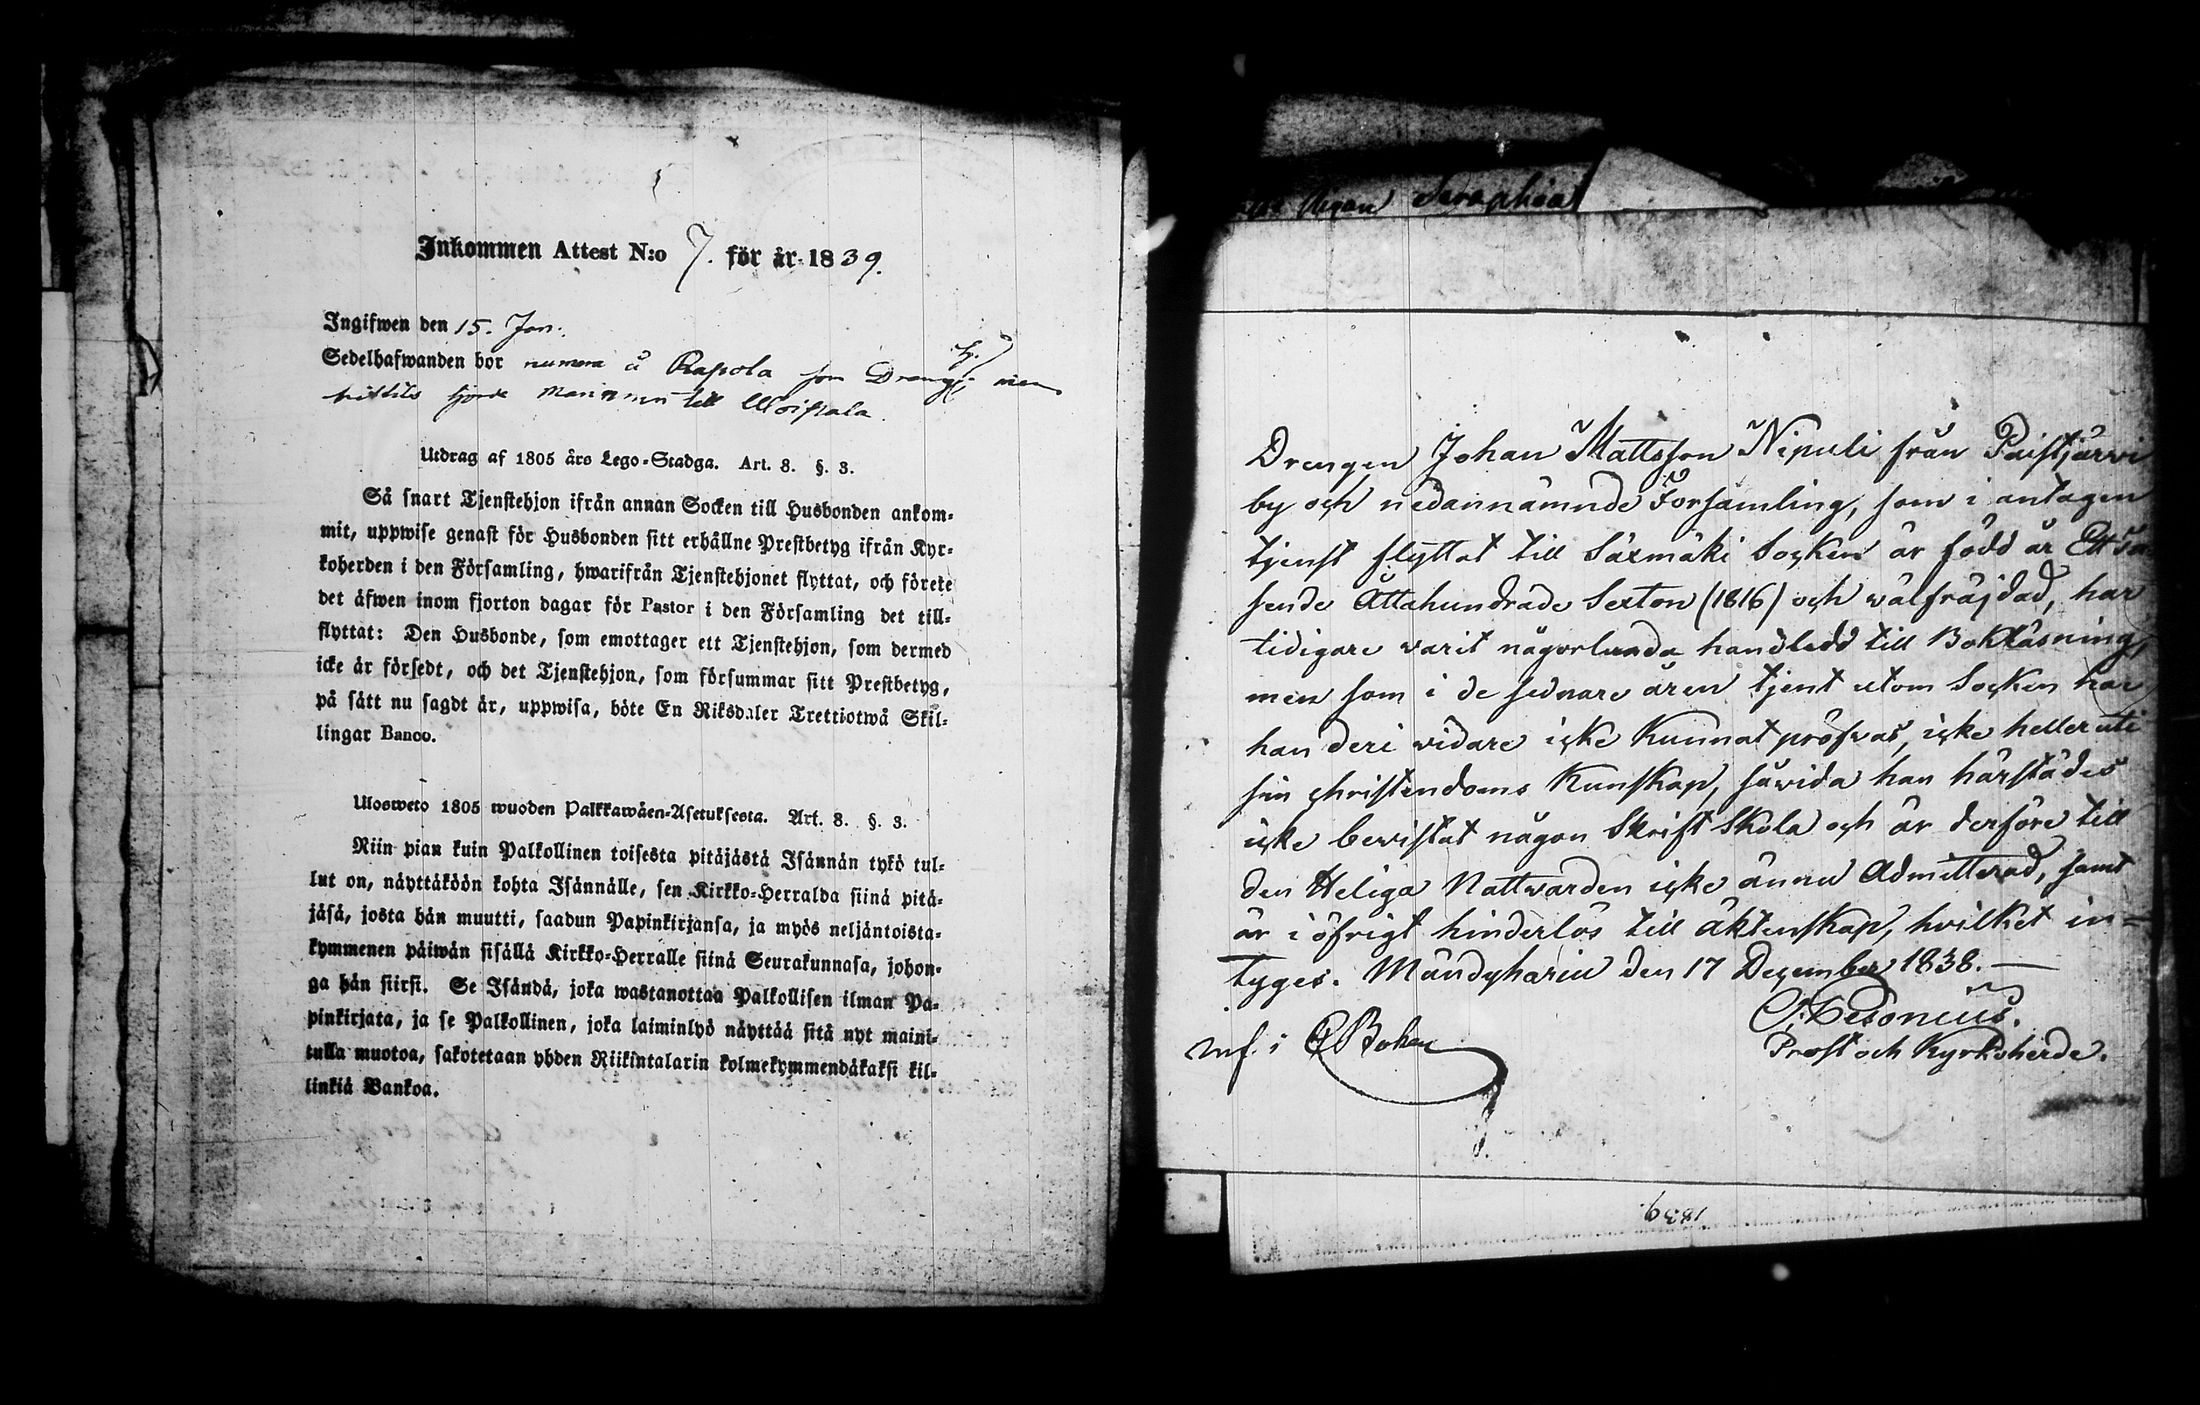 Inkommen Attest N:o 7. för år 1839.
Ingifwen den 15. Jan.
Sedelhafwanden bor numera å Rapola som Dreng, men
hittils gjorde till Woipala.
Utdrag af 1805 års Lego-Stadga. Art. 8. §. 3.
Så snart Tjenstehjon ifrån annan Socken till Husbonden ankom-
mit, uppwise genast för Husbonden sitt erhållne Prestbetyg ifrån Kyr-
koherden i den Församling, hwarifrån Tjenstehjonet flyttat, och förete
det äfwen inom fjorton dagar för Pastor i den Församling det till-
flyttat: Den Husbonde, som emottager ett Tjenstehjon, som dermed
icke är försedt, och det Tjenstehjon, som försummar sitt Prestbetyg,
på sätt nu sagdt är, uppwisa, böte En Riksdaler Trettiotwå Skil-
lingar Banco.
Ulosweto 1805 wuoden Palkkawäen-Asetuksesta. Art. 8. §. 3.
Niin pian kuin Palkollinen toisesta pitäjästä Isännän tykö tul-
lut on, näyttäköön kohta Isännälle, sen Kirkko-Herralda siinä pitä-
jäsä, josta hän muutti, saadun Papinkirjansa, ja myös neljäntoista-
kymmenen päiwän sisällä Kirkko-Herralle siinä Seurakunnasa, johon-
ga hän siirsi. Se Isändä, joka wastanottaa Palkollisen ilman Pa-
pinkirjata, ja se Palkollinen, joka laiminlyö näyttää sitä nyt maini-
tulla muotoa, sakotetaan yhden Riikintalarin kolmekymmendäkaksi kil-
linkiä Bankoa.
Pigan Seraphia
Drengen Johan Mattsson Nipuli från Paistjärwi
by och nedannämnde Församling, som i antagen
tjenst flyttat till Säxmäki Socken är född år Ett tu
sende Åttahundrade Sexton (1816) och wälfräjdad, har
tidigare varit någorlunda handledd till Bokläsning,
men som i de sednare åren tjent utom Socken har
han deri vidare icke kunnat pröfvas, icke heller uti
sin christendoms Kunskap, såvida han härstädes
icke bevistat någon Skrift Skola och är derföre till
den Heliga Nattvarden icke ännu Admitterad, samt
är i öfrigt hinderlös till äktenskap, hvilket in=
tyges. Mändyharju den 17 December 1838. —
Prost och Kyrkoherde.
1839